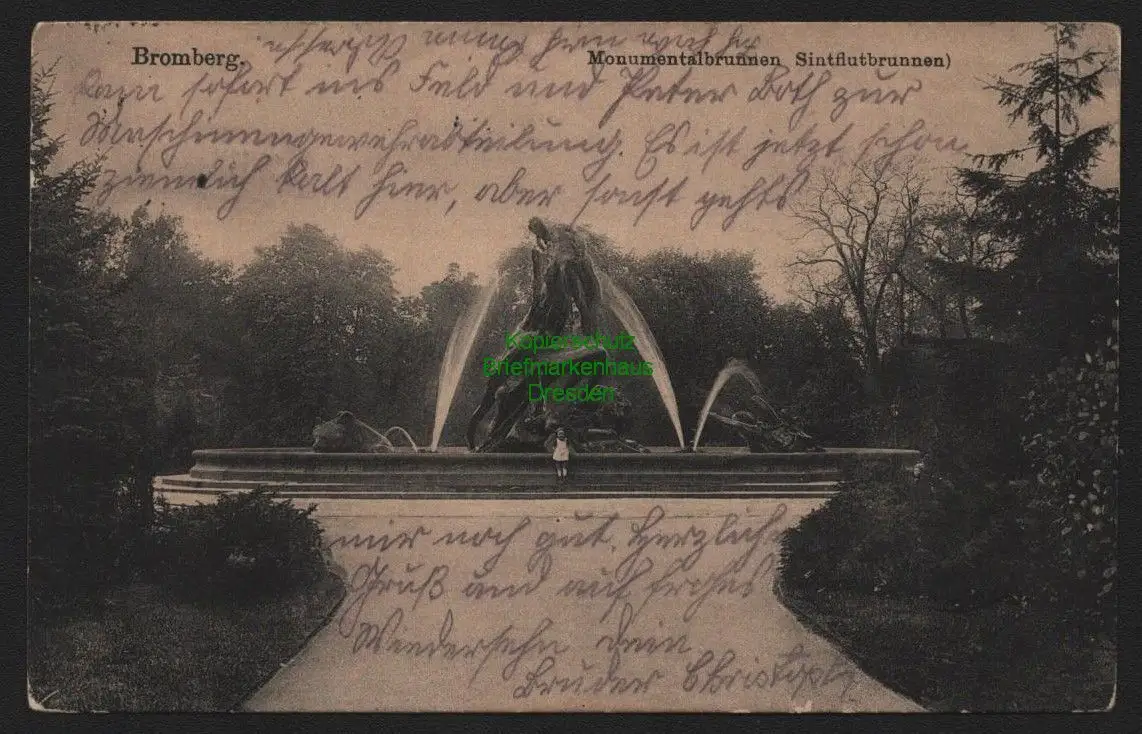 Bromberg.
Monumentalbrunnen Sintflutbrunnen)
kam sofort ins Feld und Peter Both zur
Maschinengewehrabteilung. Es ist jetzt schon
ziemlich kalt hier, aber sonst gehts
Kopierschutz
Briefmarkenhaus
Dresden
mir noch gut. Herzliche
Gruß und auf frohes
Wiedersehn Dein
Bruder Christoph